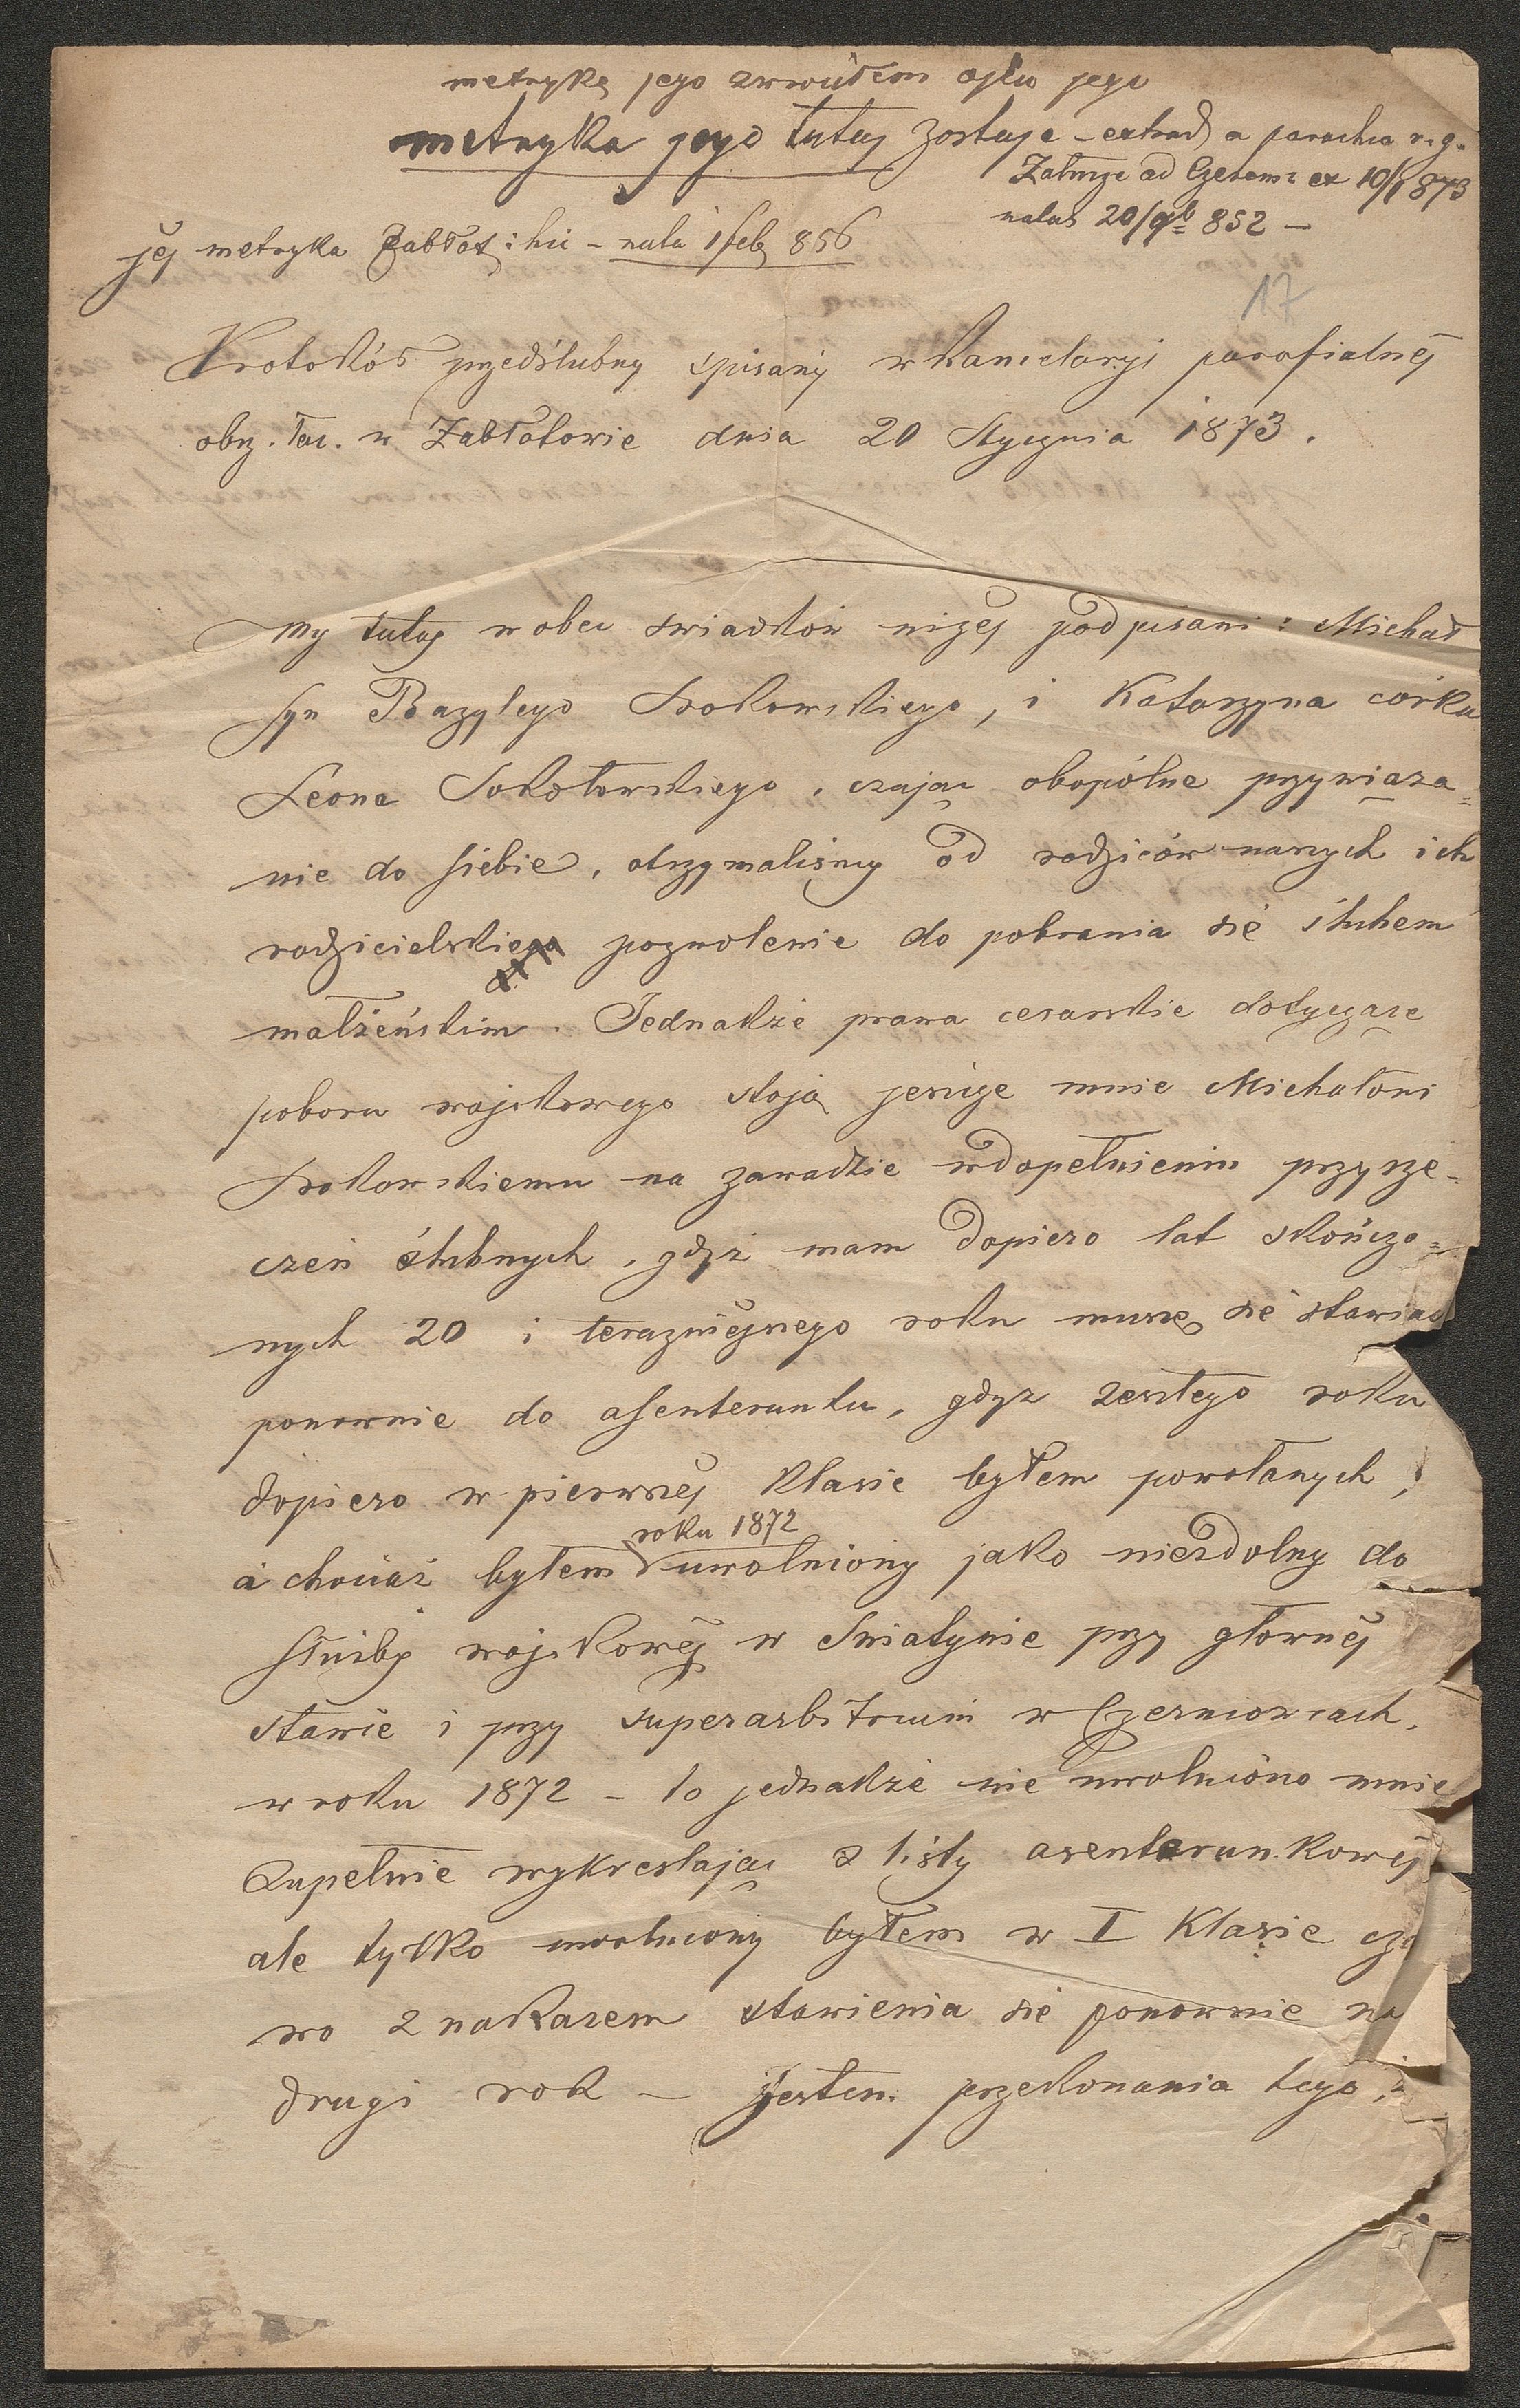 metrykę jego zwróciłem ojcu jego
metryka jego tutaj zostaje – extrad a parochia r. g.
Załucze ad Czerem: ex 10/1 873
natus 20/9b 852 –
jej metryka Zabłot: hic – nata 1 feb 856
17
Protokół przedślubny spisany w Kancelaryi parafialnéj
obrz. łac. w Zabłotowie dnia 20 Stycznia 1873.
My tutaj wobec swiadków niżéj podpisani: Michał
syn Bazylego Srokowskiego, i Katarzyna córka
Leona Sokołowskiego, czując obopólne przywiąza=
nie do siebie, otrzymaliśmy od rodziców naszych ich
rodzicielskie pozwolenie do pobrania się ślubem
małżeńskim. Jednakże prawa cesarskie dotyczące
poboru wojskowego stoją jeszcze mnie Michałowi
Srokowskiemu na zawadzie w dopełnieniu przyrze=
czeń ślubnych, gdyż mam dopiero lat skończo=
nych 20 i terazniéjszego roku muszę się stawiać
ponownie do assenterunku, gdyż zeszłego roku
dopiero w pierwszéj klasie byłem powołanych,
a chociaż byłem roku 1872 uwolniony jako niezdolny do
służby wojskowéj w Sniatynie przy głownéj
stawie i przy superarbitrium w Czerniowcach,
w roku 1872 – to jednakże nie uwolniono mnie
zupełnie wykreslając z listy asenterunkowéj
ale tylko uwolniony byłem w I klasie
wo z nakazem stawienia się ponownie na
drugi rok – Jestem przekonania tego,